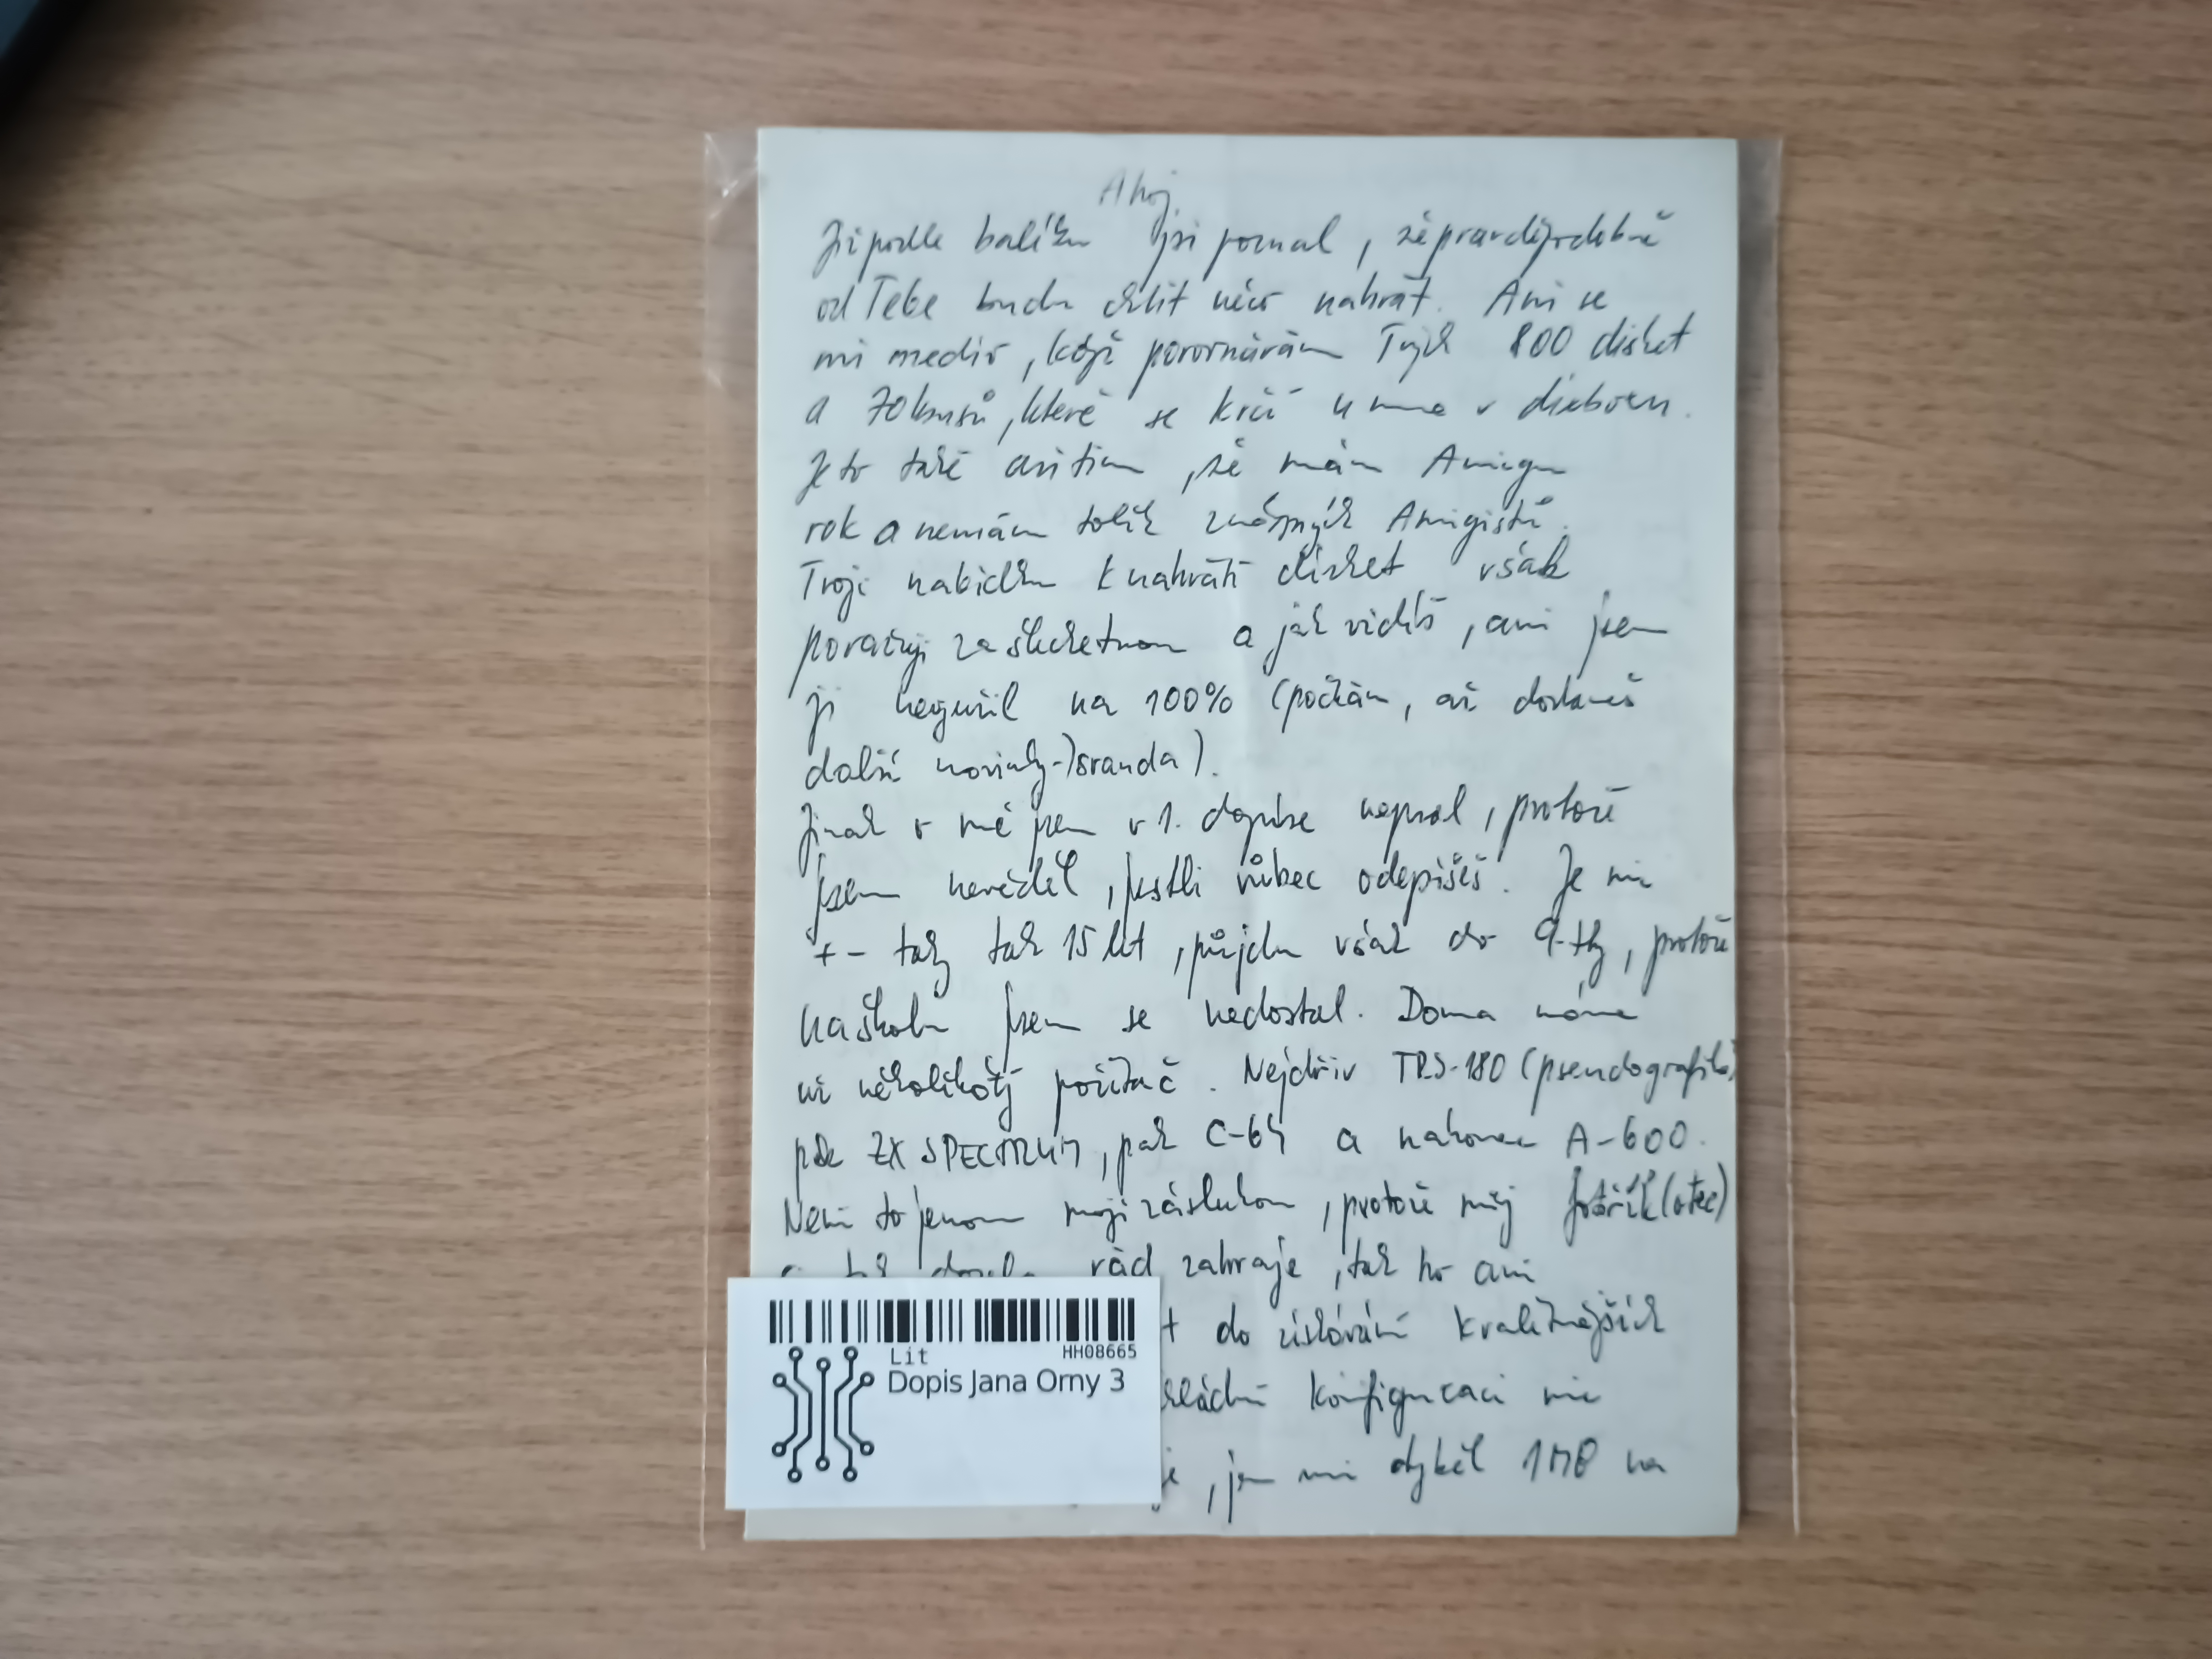 Ahoj,
Již podle balíku jsi poznal, že pravděpodobně
od Tebe budu chtít něco nahrát. Ani se
mi nediv, když porovnávám Tvých 800 disket
a 70 kusů, které se krčí u mne v diskboxu.
Je to také asi tím, že mám Amigu
rok a nemám tolik známých Amigistů.
Tvoji nabídku k nahrátí disket však
považuji za šlechetnou a jak vidíš, ani jsem
ji nevyužil na 100% (počkám, až dostaneš
další novinky-)sranda).
Jinak o mě jsem v 1. dopise nepsal, protože
jsem nevěděl, jestli vůbec odepíšeš. Je mi
+- tak 15 let, půjdu však do 9-tky, protože
na školu jsem se nedostal. Doma máme
už několikátý počítač. Nejdřív TRS-180 (pseudografika)
pak ZX SPECTRUM, pak C-64 a nakonec A-600.
Není to jenom moji zásluhou, protože můj fotřík (otec)
rád zahraje, tak ho ani
do získávání kvalitnějších
konfiguraci nic
, jen mi chyběl 1MB na
Lit HH08665
Dopis Jana Orny 3